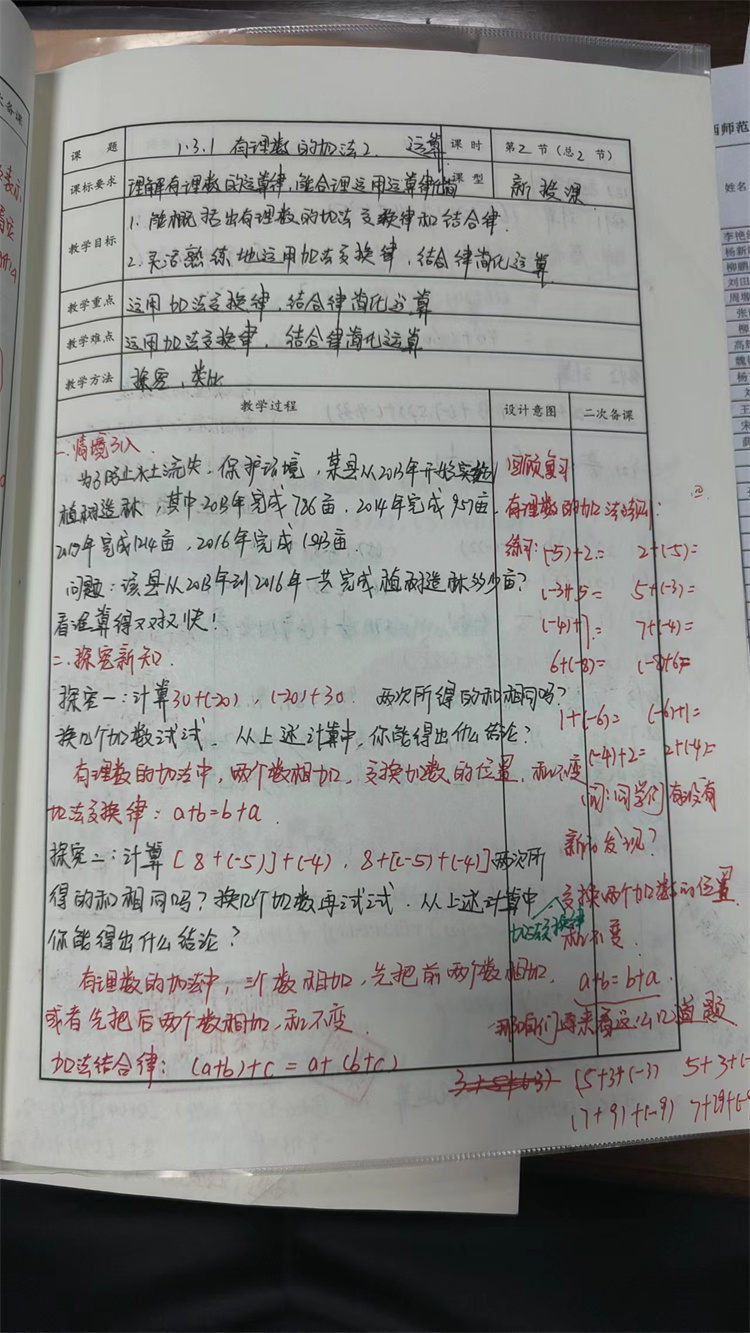 课 题 1.3.1 有理数的加法2. 运算 课 时 第2节(总2节)
课标要求 理解有理数的运算律,能合理运用运算律简 课 型 新授课
教学目标 1. 能概括出有理数的加法交换律和结合律.
2. 灵活熟练地运用加法交换律,结合律简化运算.
教学重点 运用加法交换律,结合律简化运算
教学难点 运用加法交换律,结合律简化运算
教学方法 探究,类比
教学过程 设计意图 二次备课
一.情境引入
为了防止水土流失,保护环境,某县从2013年开始实施
植树造林,其中2013年完成786亩,2014年完成957亩,
2015年完成1214亩,2016年完成1543亩.
问题:该县从2013年到2016年一共完成植树造林多少亩?
看谁算得又对又快!
二.探究新知.
探究一:计算30+(-20),(-20)+30. 两次所得的和相同吗?
换几个加数试试. 从上述计算中,你能得出什么结论?
有理数的加法中,两个数相加,交换加数的位置,和不变
加法交换律:a+b=b+a.
探究二:计算[8+(-5)]+(-4),8+[(-5)+(-4)].两次所
得的和相同吗?换几个加数再试试.从上述计算中
你能得出什么结论?
有理数的加法中,三个数相加,先把前两个数相加,
或者先把后两个数相加,和不变.
加法结合律:(a+b)+c=a+(b+c)
回顾复习
有理数的加法法则:
练习:(-5)+2= 2+(-5)=
(-3)+5= 5+(-3)=
(-4)+7= 7+(-4)=
6+(-8)= (-8)+6=
1+(-6)= (-6)+1=
(-4)+2= 2+(-4)=
问:同学们有没有
新的发现?
交换两个加数的位置
加法交换律 和不变.
a+b=b+a.
那咱们再来看这几道题
3+5+(-3) (5+3)+(-3) 5+3+(-
(7+9)+(-9) 7+(9+(-9
上备课
师范
姓名